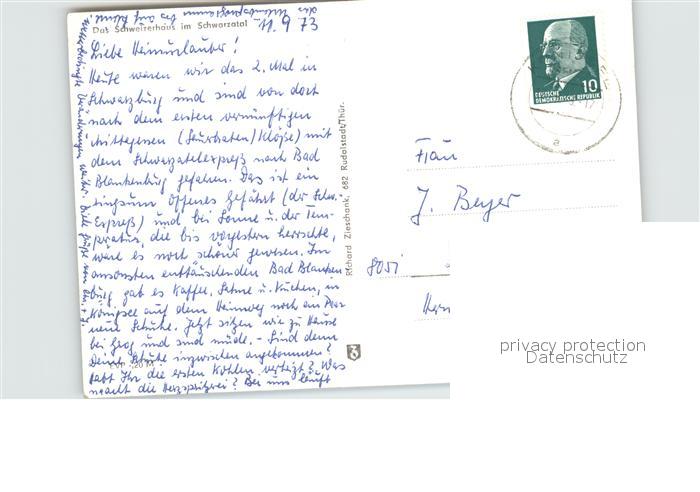 Das Schweizerhaus im Schwarzatal
11.9.73
Liebe Heimurlauber!
Heute waren wir das 2. Mal in
Schwarzburg und sind von dort
nach dem ersten vernünftigen
Mittagessen (Sauerbraten/Klöße) mit
dem Schwarzatalexpreß nach Bad
Blankenburg gefahren. Das ist ein
ringsum offenes Gefährt (der Schw.
Expreß) und bei Sonne u. der Tem-
peratur, die bis vorgestern herrschte,
wäre es noch schöner gewesen. Im
ansonsten enttäuschenden Bad Blanken
burg gab es Kaffee, Sahne u. Kuchen, in
Königsee auf dem Heimweg noch ein Paar
neue Schuhe. Jetzt sitzen wir zu Hause
bei Grog und sind müde. - Sind denn
Deine Schuhe inzwischen angekommen?
Habt Ihr die ersten Kohlen verheizt? Was
macht die Herzspritzerei? Bei uns läuft
das Urlaubsprogramm bis auf kleine
wetterbedingte Veränderungen weiter. Viele Grüße von
EVP -,20 M
Richard Zieschank, 682 Rudolstadt/Thür.
10
DEUTSCHE
DEMOKRATISCHE REPUBLIK
a
Frau
J. Beyer
8051
privacy protection
Datenschutz